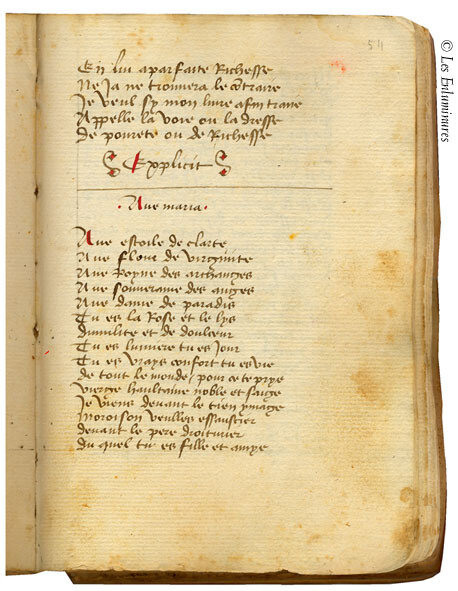 54
En lui a parfaite Richesse
Ne Ja ne trouuera le contraire
Je veul sy mon liure afin traire
Appelle la voie ou la dresse
De pourete ou de Richesse
Explicit
Aue maria
Aue estoile de clarte
Aue flour de virginite
Aue Royne des archanges
Aue souueraine des anges
Aue dame de paradis
Tu es la Rose et le lys
dumilite et de doulceur
Tu es lumiere tu es jour
Tu es vrays confort tu es vie
de tout le monde pour ce te prye
vierge haultaine noble et saige
Je viens deuant le tien ymaige
Mon oroison veulles essaulcier
deuant le pere droiturier
du quel tu es fille et amye
© Les Enluminures